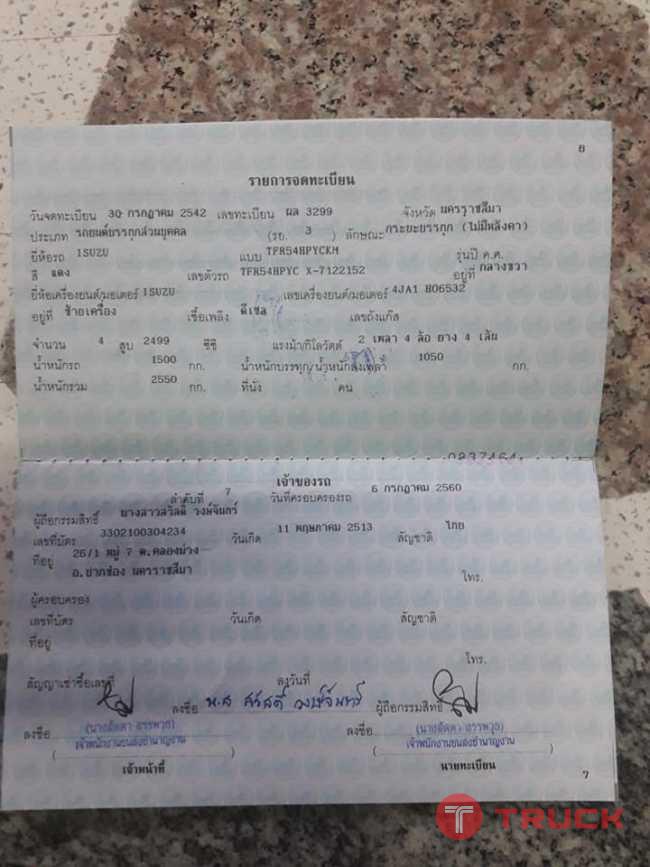 8
รายการจดทะเบียน
วันจดทะเบียน 30 กรกฎาคม 2542 เลขทะเบียน ผล 3299 จังหวัด นครราชสีมา
ประเภท รถยนต์บรรทุกส่วนบุคคล (รย. 3 ) ลักษณะ กระบะบรรทุก (ไม่มีหลังคา)
ยี่ห้อรถ ISUZU แบบ TFR54HPYCKM รุ่นปี ค.ศ.
สี แดง เลขตัวรถ TFR54HPYC X-7122152 อยู่ที่ กลางขวา
ยี่ห้อเครื่องยนต์/มอเตอร์ ISUZU เลขเครื่องยนต์/มอเตอร์ 4JA1 806532
อยู่ที่ ซ้ายเครื่อง เชื้อเพลิง ดีเซล เลขถังแก๊ส
จำนวน 4 สูบ 2499 ซีซี แรงม้า/กิโลวัตต์ 2 เพลา 4 ล้อ ยาง 4 เส้น
น้ำหนักรถ 1500 กก. น้ำหนักบรรทุก/น้ำหนักลงเพลา 1050 กก.
น้ำหนักรวม 2550 กก. ที่นั่ง คน
เจ้าของรถ
ลำดับที่ 7 วันที่ครอบครองรถ 6 กรกฎาคม 2560
ผู้ถือกรรมสิทธิ์ นางสาวสวัสดิ์ วงษ์จันทร์
เลขที่บัตร 3302100304234 วันเกิด 11 พฤษภาคม 2513 สัญชาติ ไทย
ที่อยู่ 26/1 หมู่ 7 ต.คลองม่วง
อ.ปากช่อง นครราชสีมา
โทร.
ผู้ครอบครอง
เลขที่บัตร วันเกิด สัญชาติ
ที่อยู่
โทร.
สัญญาเช่าซื้อเลขที่ ลงวันที่
ลงชื่อ น.ส สวัสดิ์ วงษ์จันทร์ ผู้ถือกรรมสิทธิ์
ลงชื่อ ลงชื่อ
เจ้าพนักงานขนส่งชำนาญงาน เจ้าพนักงานขนส่งชำนาญงาน
เจ้าหน้าที่ นายทะเบียน
7
TRUCK